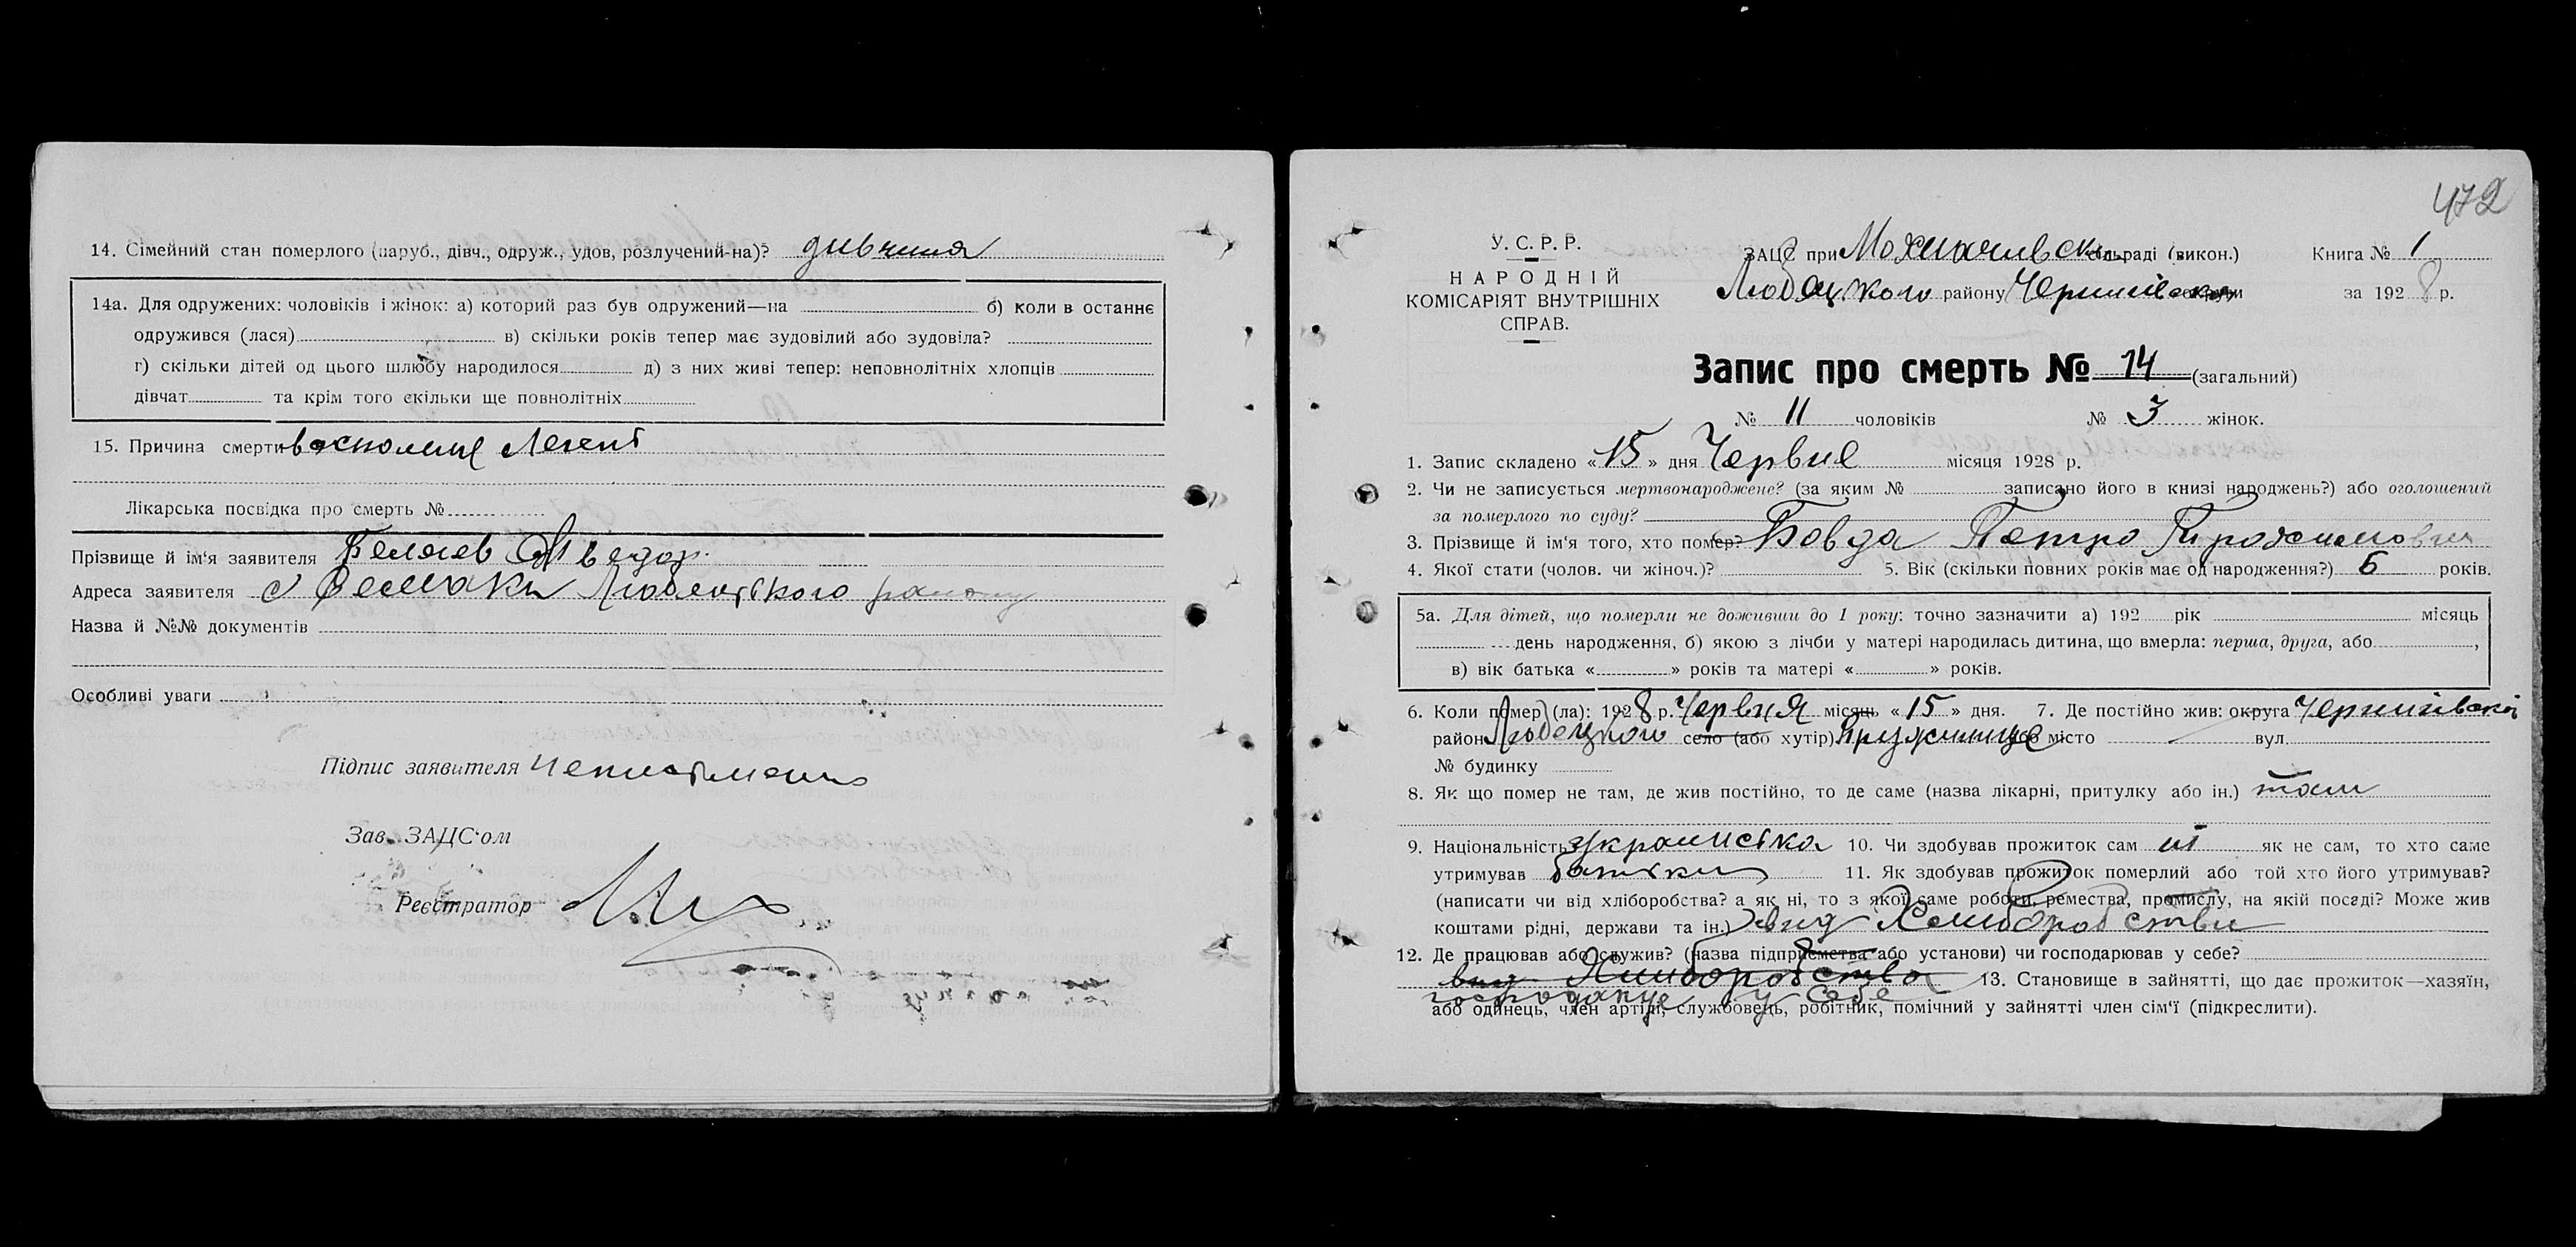 14. Сімейний стан померлого (паруб., дівч., одруж., удов, розлучений-на)? дивчина
14а. Для одружених: чоловіків і жінок: а) которий раз був одружений—на б) коли в останнє
одружився (лася) в) скільки років тепер має зудовілий або зудовіла?
г) скільки дітей од цього шлюбу народилося д) з них живі тепер: неповнолітніх хлопців
дівчат та крім того скільки ще повнолітніх
15. Причина смерти
Лікарська посвідка про смерть №
Прізвище й ім'я заявителя Беляев
Адреса заявителя с Семаки Любецького району
Назва й №№ документів
Особливі уваги
Підпис заявителя
Зав. ЗАЦС'ом
Реєстратор
472
У. С. Р. Р.
НАРОДНІЙ
КОМІСАРІЯТ ВНУТРІШНІХ
СПРАВ.
ЗАЦС при сільраді (викон.) Книга № 1
Любецкого району за 1928 р.
Запис про смерть № 14 (загальний)
№ 11 чоловіків № 3 жінок.
1. Запис складено «15» дня Червня місяця 1928 р.
2. Чи не записується мертвонароджене? (за яким № записано його в книзі народжень?) або оголошений
за померлого по суду?
3. Прізвище й ім'я того, хто помер? Бовда Петро
4. Якої стати (чолов. чи жіноч.)? 5. Вік (скільки повних років має од народження?) років.
5а. Для дітей, що померли не доживши до 1 року: точно зазначити а) 192 рік місяць
день народження, б) якою з лічби у матері народилась дитина, що вмерла: перша, друга, або ,
в) вік батька « » років та матері « » років.
6. Коли помер (ла): 1928 р. Червня місяць «15» дня. 7. Де постійно жив: округа Чернигівскої
район Любецкого село (або хутір) або місто вул.
№ будинку
8. Як що помер не там, де жив постійно, то де саме (назва лікарні, притулку або ін.) там
9. Національність 10. Чи здобував прожиток сам ні як не сам, то хто саме
утримував батьки 11. Як здобував прожиток померлий або той хто його утримував?
(написати чи від хліборобства? а як ні, то з якої саме роботи, ремества, промислу, на якій посаді? Може жив
коштами рідні, держави та ін.)
12. Де працював або служив? (назва підприємства або установи) чи господарював у себе?
13. Становище в зайнятті, що дає прожиток—хазяїн,
у себе
або одинець, член артілі, службовець, робітник, помічний у зайнятті член сім'ї (підкреслити).